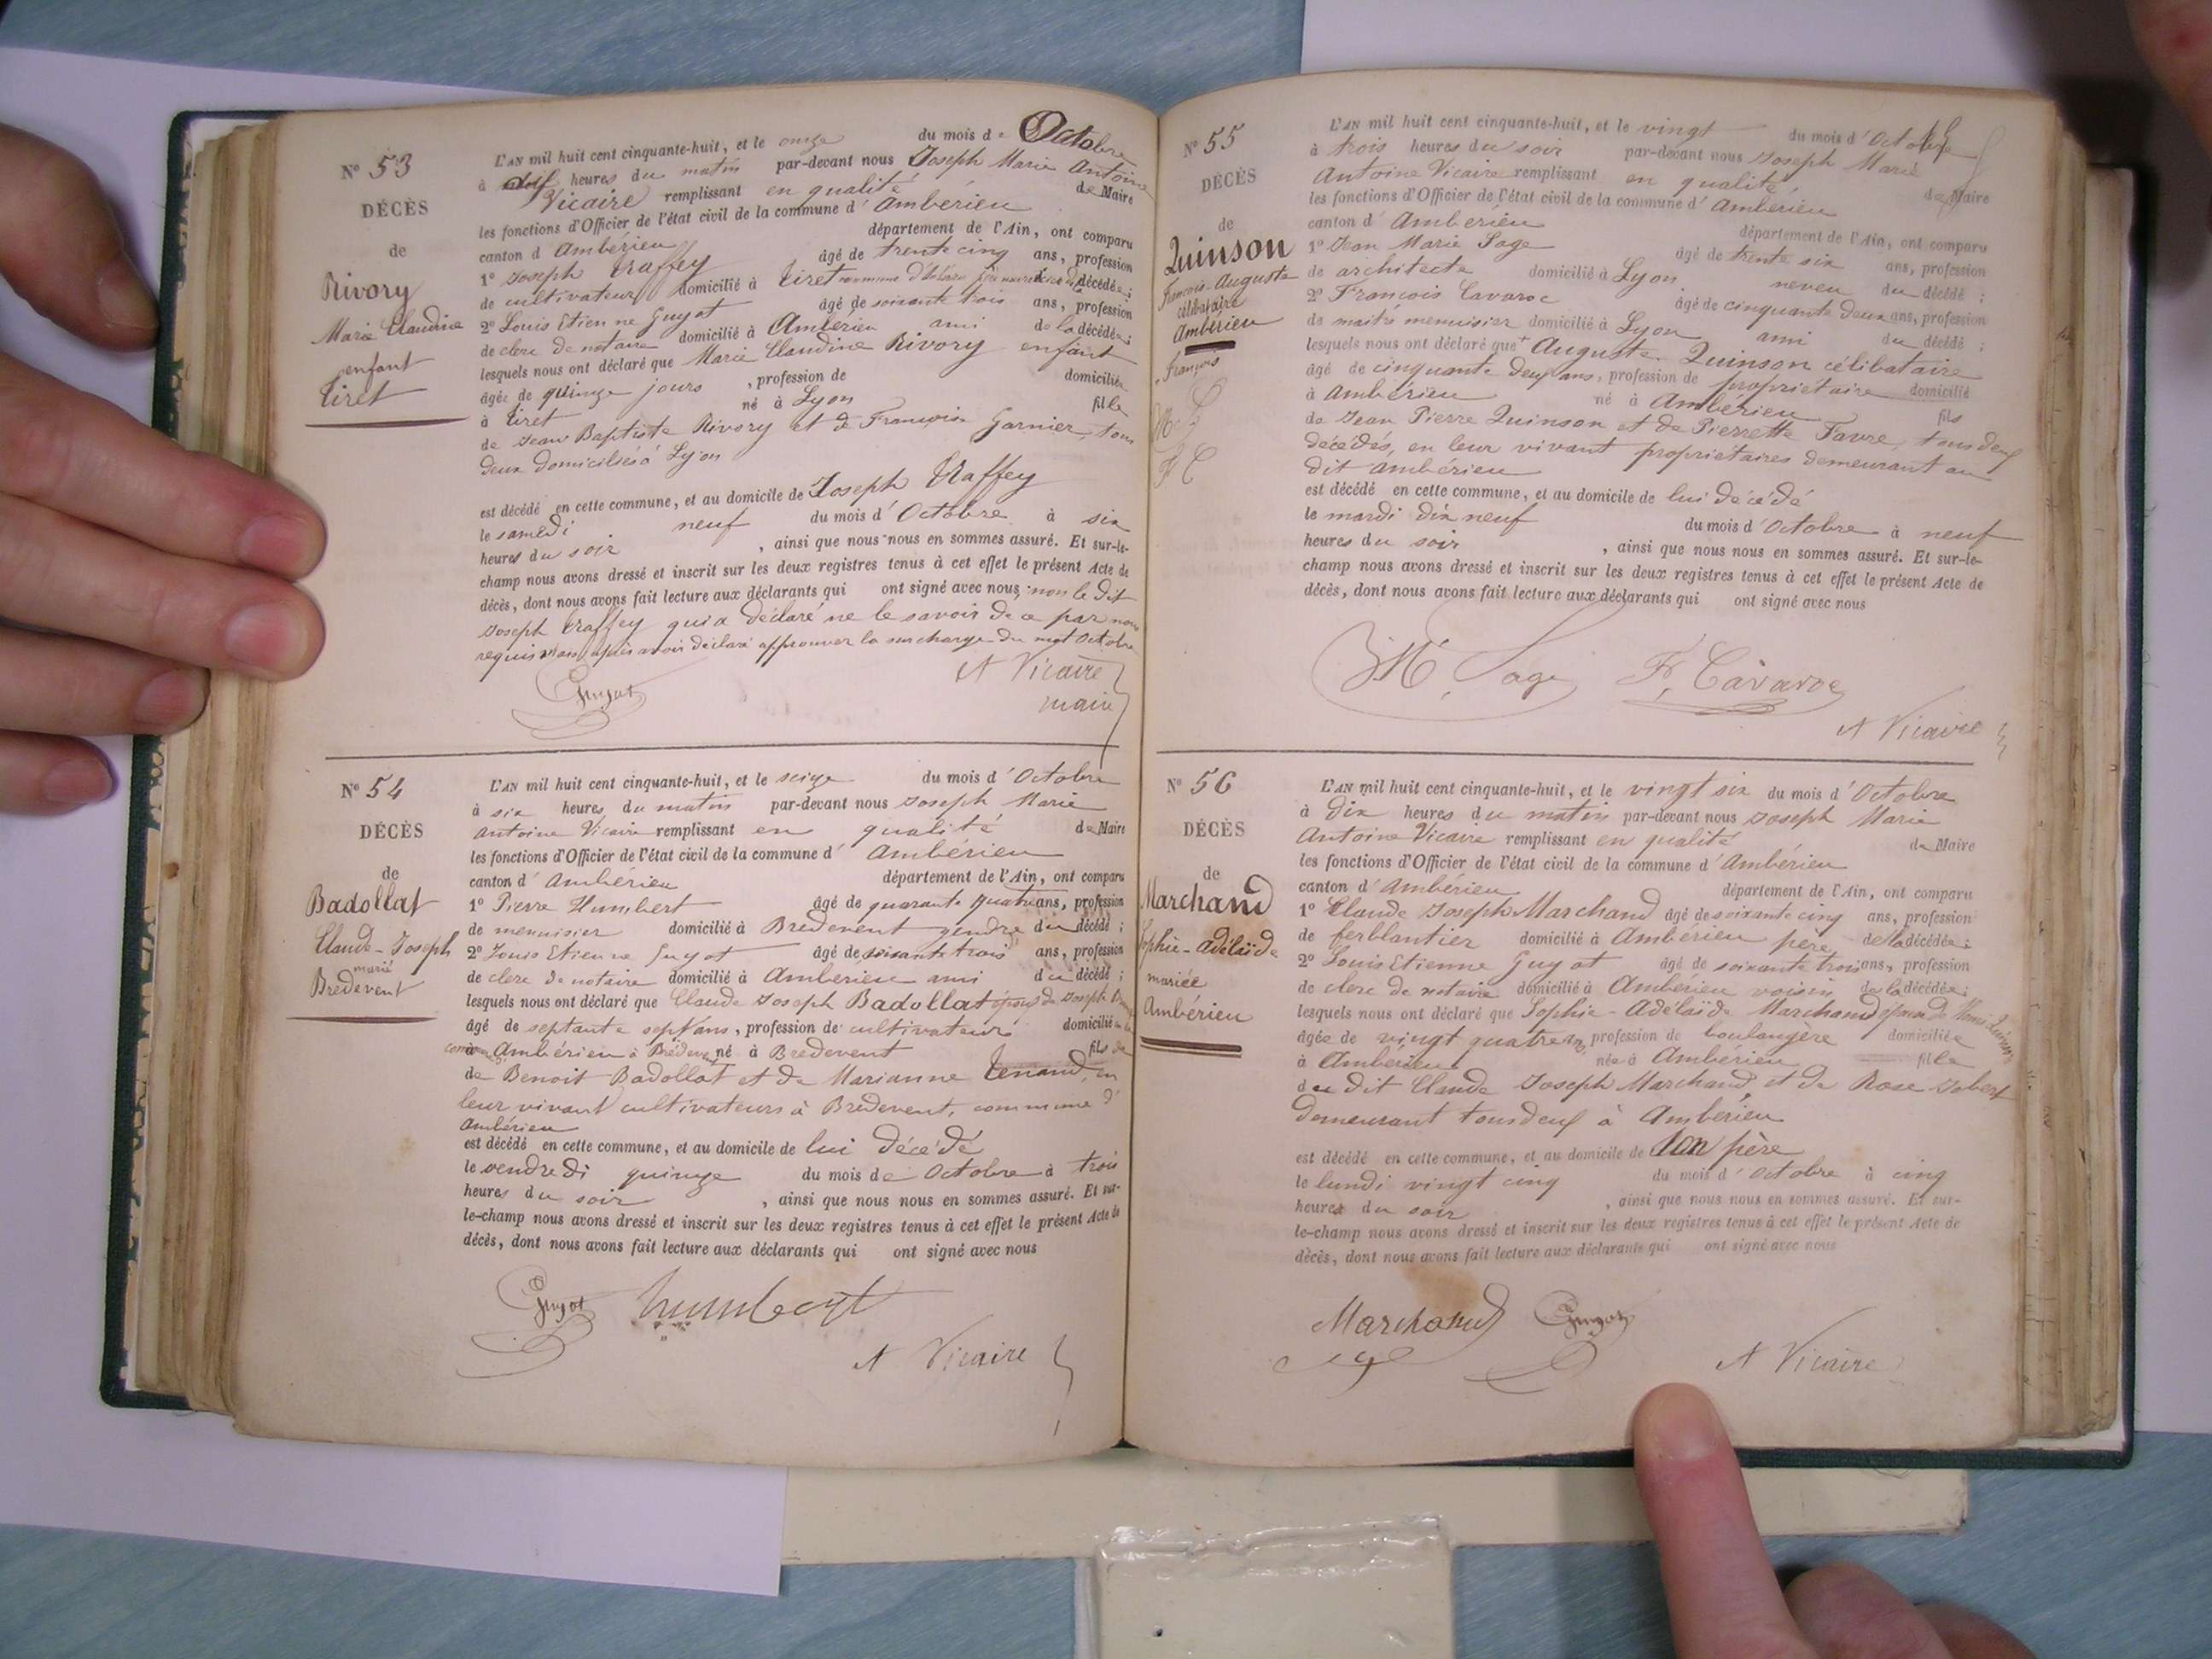 N° 53
DÉCÈS
de
Rivory
Marie Claudine
enfant
Tiret
L'AN mil huit cent cinquante-huit, et le onze du mois de Octobre
à heures du matin par-devant nous Joseph Marie Antoine
Vicaire remplissant en qualité de Maire
les fonctions d'Officier de l'état civil de la commune d'Ambérieu
canton d Ambérieu département de l'Ain, ont comparu
1° Joseph Traffey âgé de trente cinq ans, profession
de cultivateur domicilié à Tiret commune d'Ambérieu décédée ;
2° Louis Etienne Guyot âgé de soixante trois ans, profession
de clerc de notaire domicilié à Ambérieu ami de la décédée ;
lesquels nous ont déclaré que Marie Claudine Rivory enfant
âgée de quinze jours , profession de domiciliée
à Tiret né à Lyon fille
de Jean Baptiste Rivory et de Françoise Garnier, tous
deux domiciliés à Lyon
est décédé en cette commune, et au domicile de Joseph Traffey
le samedi neuf du mois d'Octobre à six
heures du soir , ainsi que nous nous en sommes assuré. Et sur-le-
champ nous avons dressé et inscrit sur les deux registres tenus à cet effet le présent Acte de
décès, dont nous avons fait lecture aux déclarants qui ont signé avec nous non le dit
Joseph Traffey qui a déclaré ne le savoir de ce par nous
requis après avoir déclaré approuver la surcharge du mot Octobre
Guyot
A Vicaire
maire
N° 54
DÉCÈS
de
Badollat
Claude-Joseph
marié
Bredevent
L'AN mil huit cent cinquante-huit, et le seize du mois d'Octobre
à six heures du matin par-devant nous Joseph Marie
Antoine Vicaire remplissant en qualité de Maire
les fonctions d'Officier de l'état civil de la commune d'Ambérieu
canton d'Ambérieu département de l'Ain, ont comparu
1° Pierre Humbert âgé de quarante quatre ans, profession
de menuisier domicilié à Bredevent gendre du décédé ;
2° Louis Etienne Guyot âgé de soixante trois ans, profession
de clerc de notaire domicilié à Ambérieu ami du décédé ;
lesquels nous ont déclaré que Claude Joseph Badollat époux de Joseph
âgé de septante sept ans, profession de cultivateur domicilié
à Ambérieu à Bredevent né à Bredevent fils
de Benoit Badollat et de Marianne Tenand, en
leur vivant cultivateurs à Bredevent, commune d'
Ambérieu
est décédé en cette commune, et au domicile de lui décédé
le vendredi quinze du mois de Octobre à trois
heures du soir , ainsi que nous nous en sommes assuré. Et sur-
le-champ nous avons dressé et inscrit sur les deux registres tenus à cet effet le présent Acte de
décès, dont nous avons fait lecture aux déclarants qui ont signé avec nous
Guyot humbert
A Vicaire
N° 55
DÉCÈS
de
Quinson
François-Auguste
célibataire
Ambérieu
+ François
F C
L'AN mil huit cent cinquante-huit, et le vingt du mois d'Octobre
à trois heures du soir par-devant nous Joseph Marie
Antoine Vicaire remplissant en qualité de Maire
les fonctions d'Officier de l'état civil de la commune d'Ambérieu
canton d'Ambérieu département de l'Ain, ont comparu
1° Jean Marie Sage âgé de trente six ans, profession
de architecte domicilié à Lyon neveu du décédé ;
2° François Cavaroc âgé de cinquante deux ans, profession
de maître menuisier domicilié à Lyon ami du décédé ;
lesquels nous ont déclaré que + Auguste Quinson célibataire
âgé de cinquante deux ans, profession de propriétaire domicilié
à Ambérieu né à Ambérieu fils
de Jean Pierre Quinson et de Pierrette Favre, tous deux
décédés, en leur vivant propriétaires demeurant au
dit Ambérieu
est décédé en cette commune, et au domicile de lui décédé
le mardi dix neuf du mois d'Octobre à neuf
heures du soir , ainsi que nous nous en sommes assuré. Et sur-le-
champ nous avons dressé et inscrit sur les deux registres tenus à cet effet le présent Acte de
décès, dont nous avons fait lecture aux déclarants qui ont signé avec nous
J M Sage F. Cavaroc
A Vicaire
N° 56
DÉCÈS
de
Marchand
Sophie-Adélaïde
mariée
Ambérieu
L'AN mil huit cent cinquante-huit, et le vingt six du mois d'Octobre
à dix heures du matin par-devant nous Joseph Marie
Antoine Vicaire remplissant en qualité de Maire
les fonctions d'Officier de l'état civil de la commune d'Ambérieu
canton d'Ambérieu département de l'Ain, ont comparu
1° Claude Joseph Marchand âgé de soixante cinq ans, profession
de ferblantier domicilié à Ambérieu père de la décédée ;
2° Louis Etienne Guyot âgé de soixante trois ans, profession
de clerc de notaire domicilié à Ambérieu voisin de la décédée ;
lesquels nous ont déclaré que Sophie-Adélaïde Marchand épouse de
âgée de vingt quatre ans, profession de boulangère domiciliée
à Ambérieu née à Ambérieu fille
du dit Claude Joseph Marchand, et de Rose Jobert
demeurant tous deux à Ambérieu
est décédé en cette commune, et au domicile de son père
le lundi vingt cinq du mois d'Octobre à cinq
heures du soir , ainsi que nous nous en sommes assuré. Et sur-
le-champ nous avons dressé et inscrit sur les deux registres tenus à cet effet le présent Acte de
décès, dont nous avons fait lecture aux déclarants qui ont signé avec nous
Marchand Guyot
A Vicaire